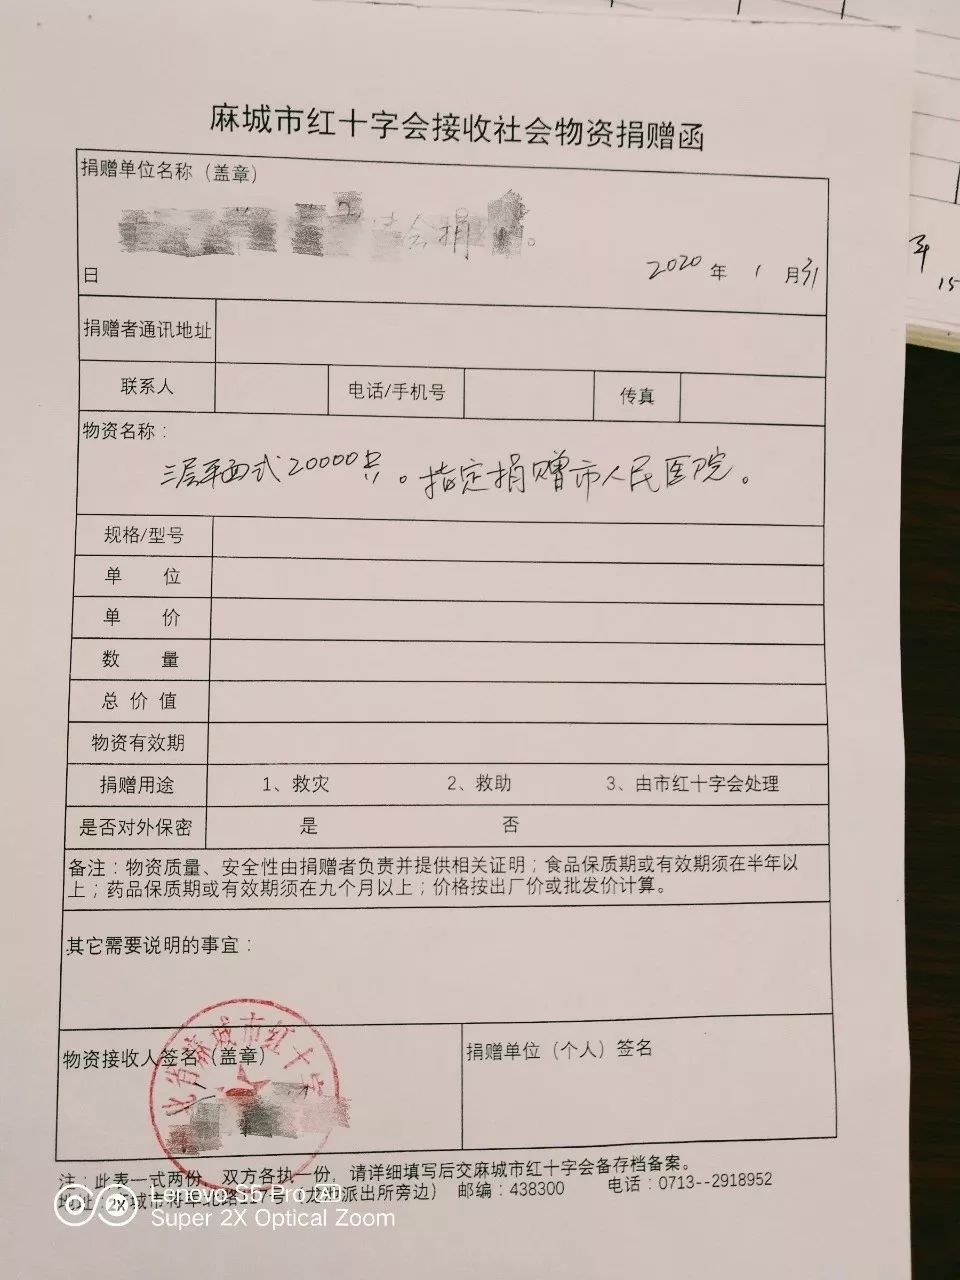 麻城市红十字会接收社会物资捐赠函
捐赠单位名称（盖章）
会捐
。
2020 年 1 月 31
日
捐赠者通讯地址
联系人 电话/手机号 传真
物资名称：
三层 式20000只。指定捐赠市人民医院。
规格/型号
单 位
单 价
数 量
总 价 值
物资有效期
捐赠用途 1、救灾 2、救助 3、由市红十字会处理
是否对外保密 是 否
备注：物资质量、安全性由捐赠者负责并提供相关证明；食品保质期或有效期须在半年以
上；药品保质期或有效期须在九个月以上；价格按出厂价或批发价计算。
其它需要说明的事宜：
物资接收人签名（盖章） 捐赠单位（个人）签名
北省麻城市红十字
注：此表一式两份，双方各执一份，请详细填写后交麻城市红十字会备存档备案。
地址： 城市将军北路 号（龙 派出所旁边） 邮编：438300 电话：0713--2918952
Lenovo S5 Pro
2X
Super 2X Optical Zoom
年
15